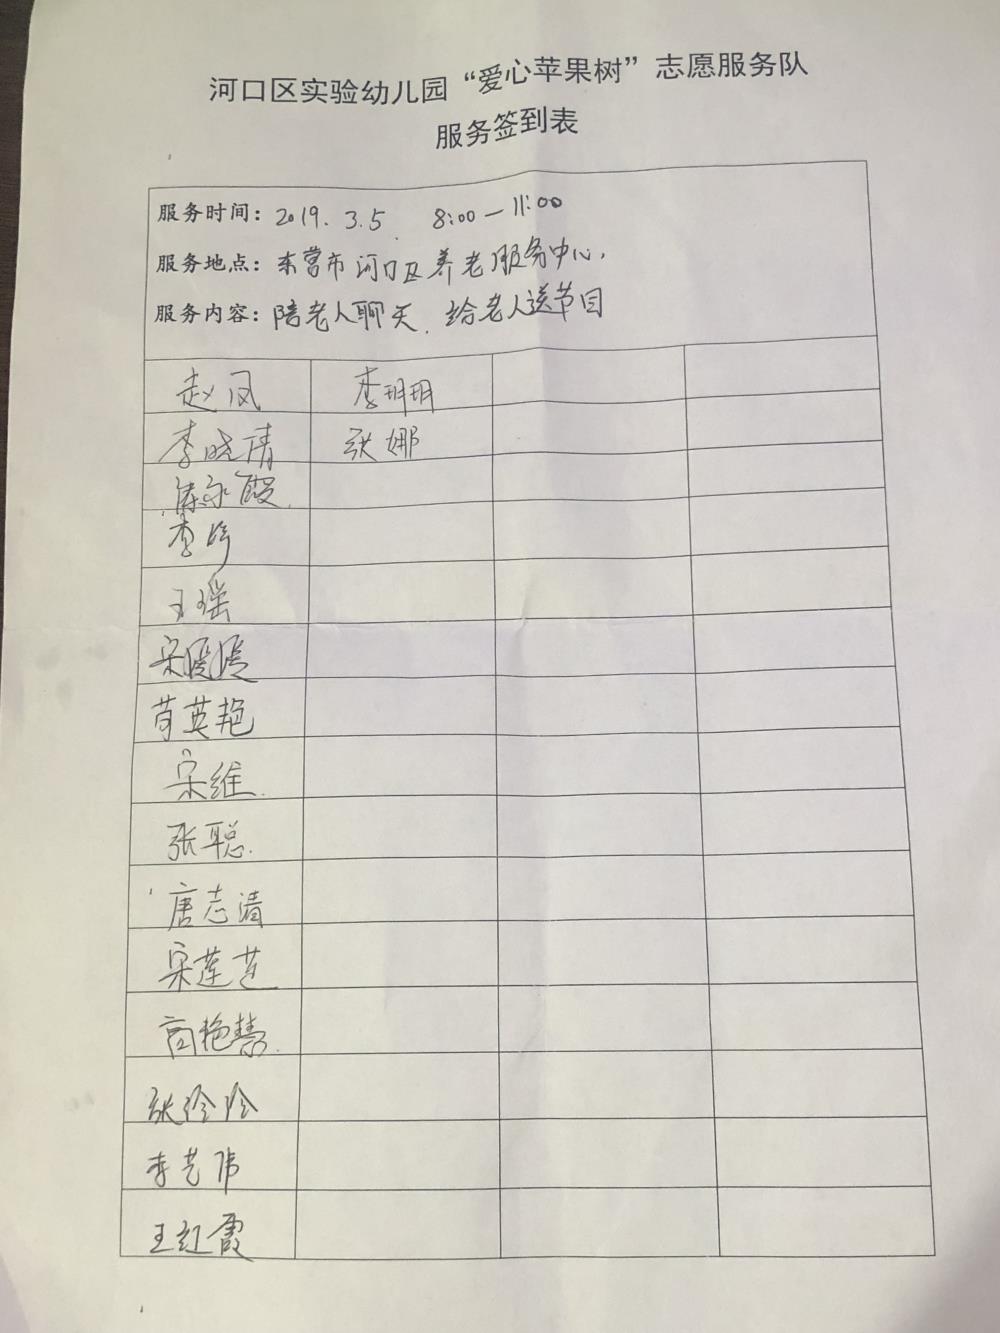 河口区实验幼儿园“爱心苹果树”志愿服务队
服务签到表
服务时间：2019.3.5. 8:00—11:00
服务地点：东营市河口区养老服务中心.
服务内容：陪老人聊天、给老人送节目
赵凤 李玥玥
李晓倩 张娜
李
王瑶
宋媛媛
苟英艳
宋维.
张聪.
唐志清
宋莲芝
高艳慧.
张玲玲
李艺伟
王红霞